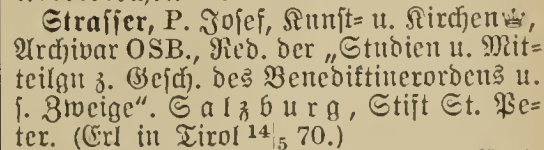 Straſſer, P. Joſef, Kunſt= u. Kirchen♕,
Archivar OSB., Red. der „Studien u. Mit=
teilgn z. Geſch. des Benediktinerordens u.
ſ. Zweige“. Salzburg, Stift St. Pe=
ter. (Erl in Tirol 14|5 70.)